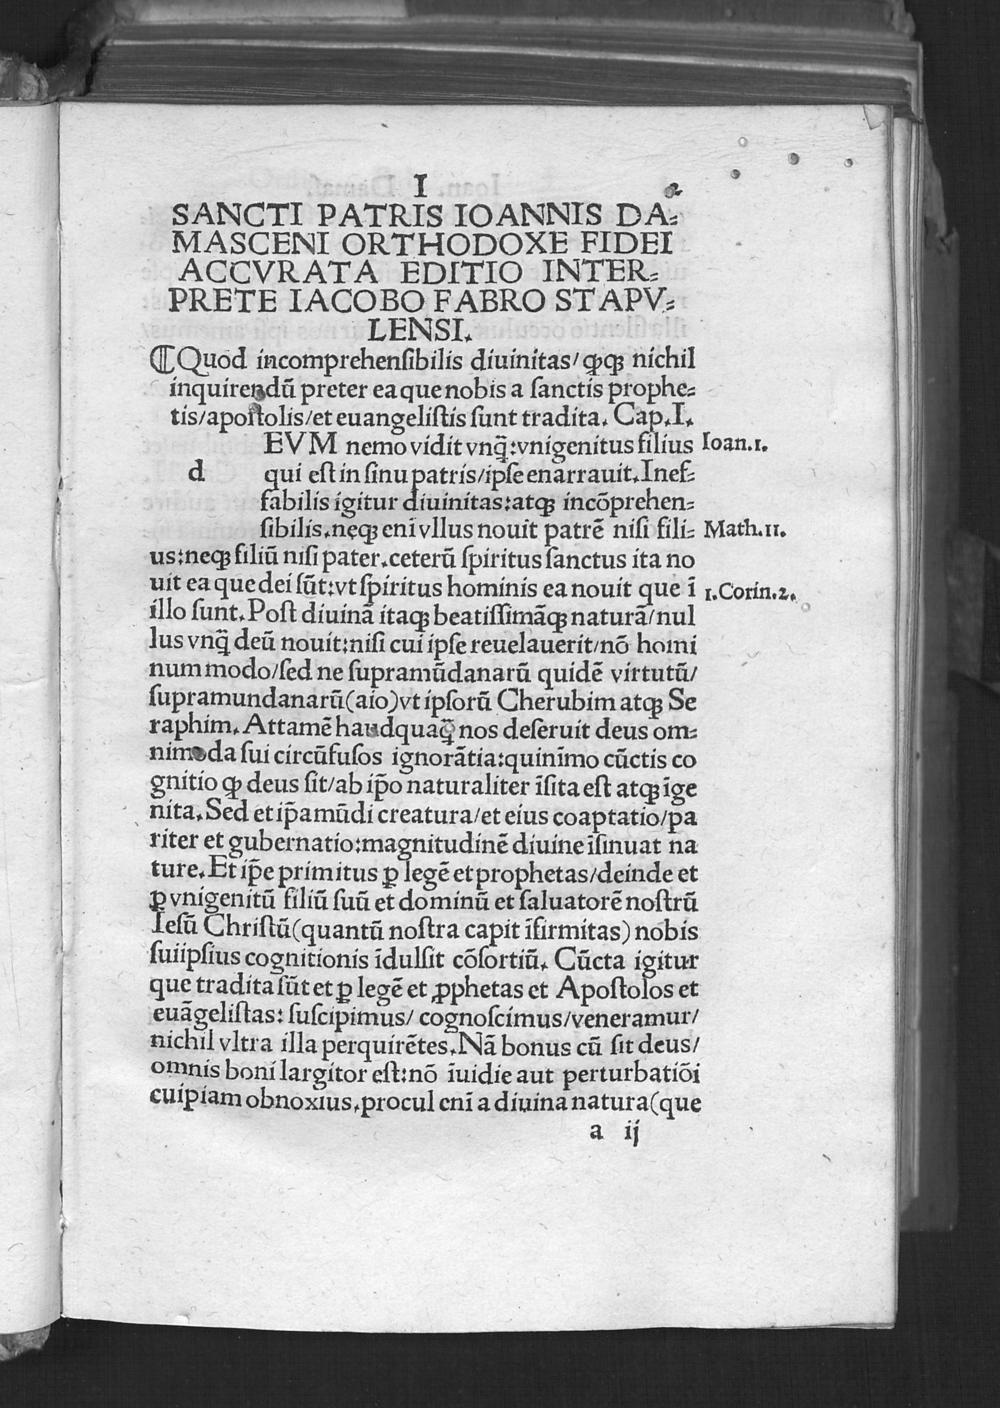 I 2
SANCTI PATRIS IOANNIS DA⸗
MASCENI ORTHODOXE FIDEI
ACCVRATA EDITIO INTER⸗
PRETE IACOBO FABRO STAPV⸗
LENSI.
¶Quod incomprehensibilis diuinitas/ ꝙꝗ nichil
inquirendū preter ea que nobis a sanctis prophe⸗
tis/apostolis/et euangelistis sunt tradita. Cap.I.
EVM nemo vidit vnꝗ̄:vnigenitus filius Ioan.1.
d qui est in sinu patris/ipse enarrauit.Inef⸗
fabilis igitur diuinitas:atqꝫ incōprehen⸗
sibilis.nęqꝫ enī vllus nouit patrē nisi fili⸗ Math.11.
us:neqꝫ filiū nisi pater.ceterū spiritus sanctus ita no
uit ea que dei sūt:vt spiritus hominis ea nouit que ī 1.Corin.2.
illo sunt.Post diuinā itaqꝫ beatissimāqꝫ naturā/nul
lus vnꝗ̄ deū nouit:nisi cui ipse reuelauerit/nō homi
num modo/sed ne supramūdanarū quidē virtutū/
supramundanarū(aio)vt ipsorū Cherubim atqꝫ Se
raphim.Attamē haudquaꝗ̄ nos deseruit deus om⸗
nimoda sui circūfusos ignorātia:quinīmo cūctis co
gnitio ꝙ deus sit/ab ip̄o naturaliter īsita est atqꝫ īge
nita.Sed et ip̄a mūdi creatura/et eius coaptatio/pa
riter et gubernatio:magnitudinē diuine īsinuat na
ture.Et ip̄e primitus ꝑ legē et prophetas/deinde et
ꝑ vnigenitū filiū suū et dominū et saluatorē nostrū
Iesū Christū(quantū nostra capit īfirmitas) nobis
suiipsius cognitionis īdulsit cōsortiū. Cūcta igitur
que tradita sūt et ꝑ legē et ꝓphetas et Apostolos et
euāgelistas: suscipimus/ cognoscimus/veneramur/
nichil vltra illa perquirētes.Nā bonus cū sit deus/
omnis boni largitor est:nō īuidie aut perturbatiōi
cuipiam obnoxius.procul enī a diuina natura(que
a ij